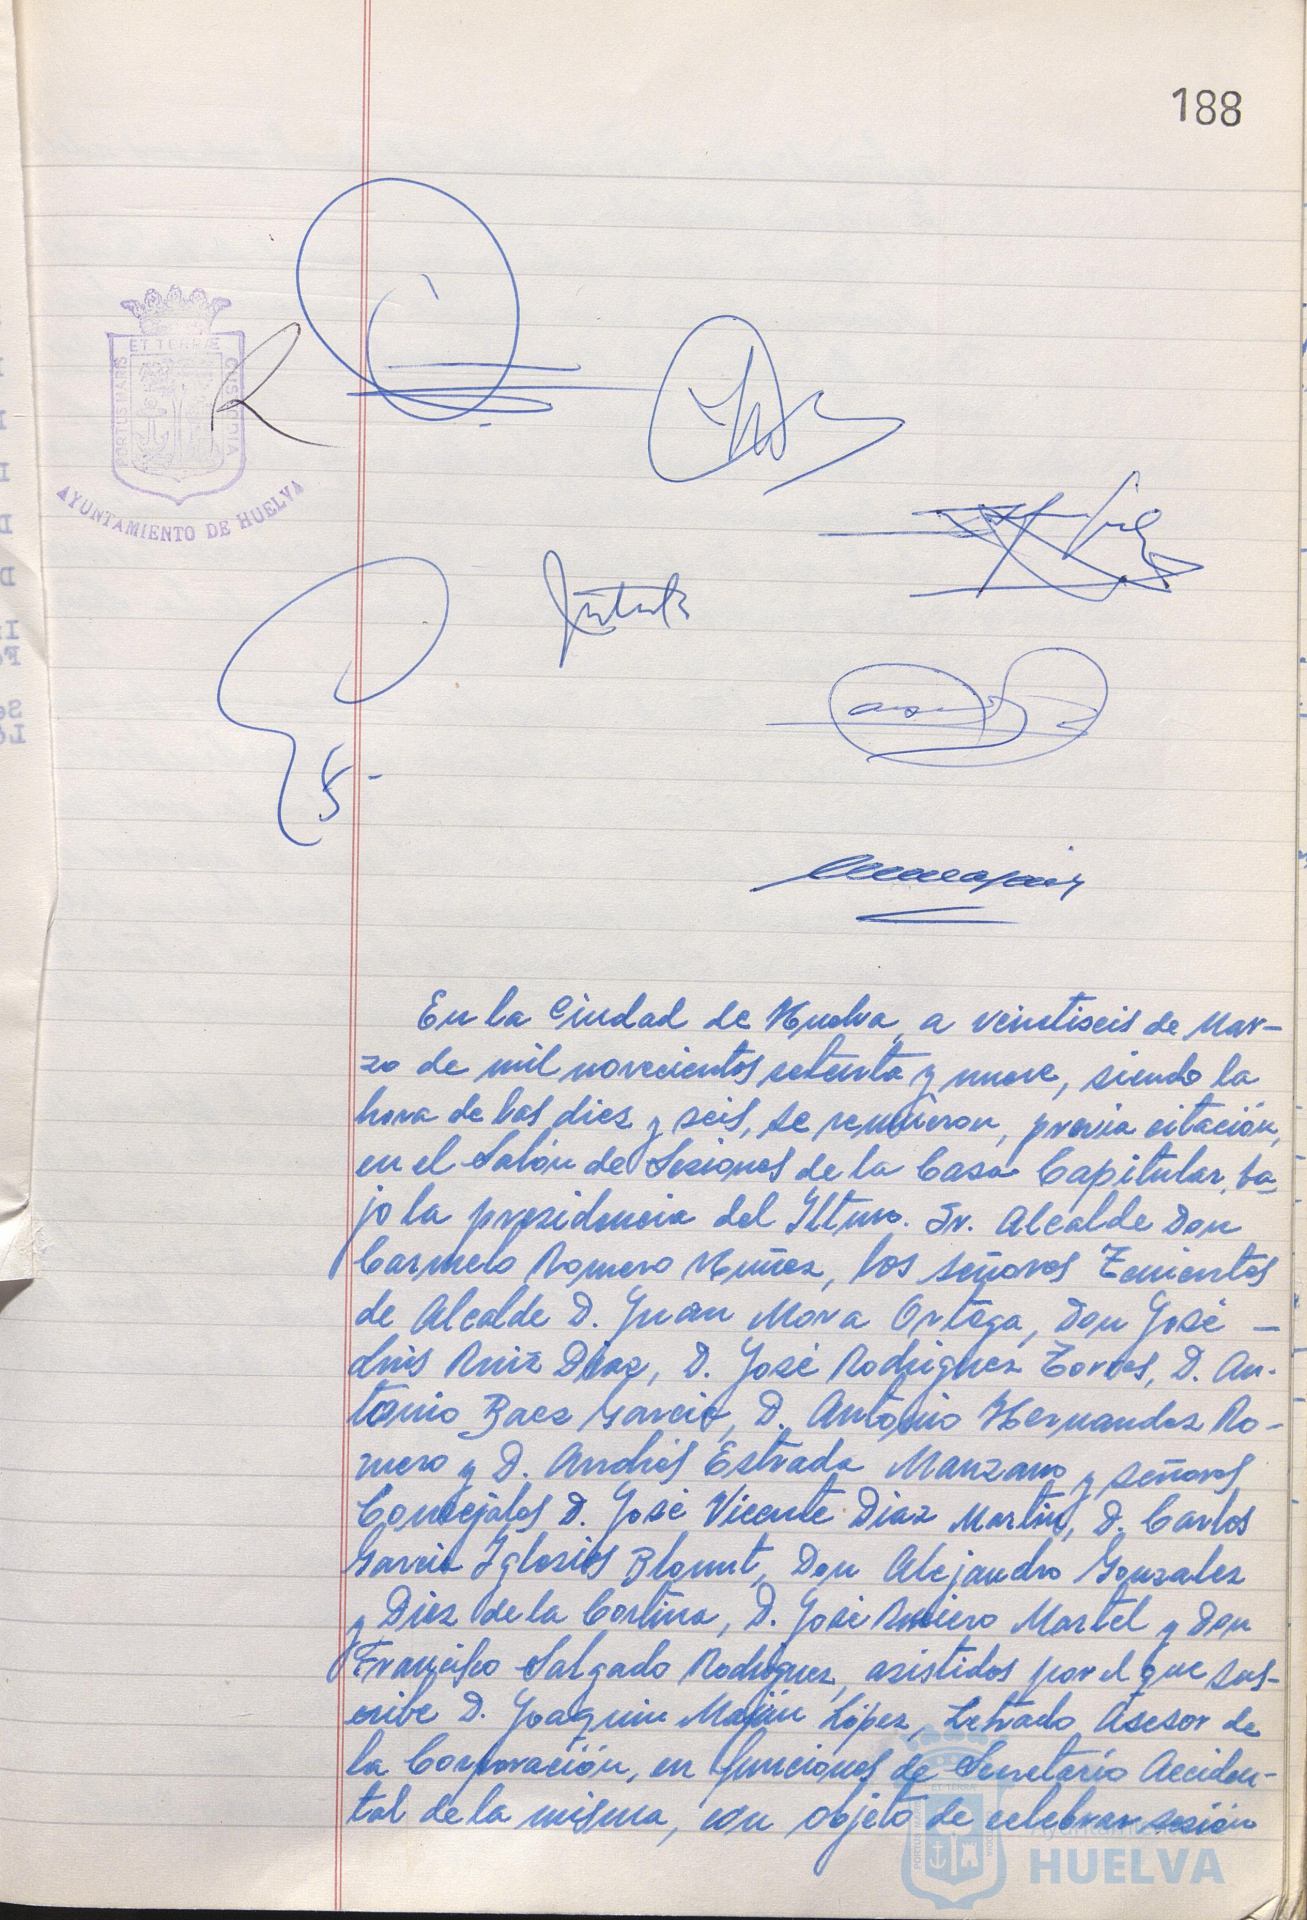 188
ET TERRÆ
PORTUS MARIS
CUSTODIA
AYUNTAMIENTO DE HUELVA
En la Ciudad de Huelva, a veintiseis de Mar-
zo de mil novecientos setenta y nueve, siendo la
hora de las diez y seis, se reunieron, previa citación,
en el Salón de Sesiones de la Casa Capitular, ba-
jo la presidencia del Iltmo. Sr. Alcalde Don
Carmelo Romero Nuñez, los señores Tenientes
de Alcalde D. Juan Mora Ortega, Don José -
Luis Ruiz Diaz, D. José Rodriguez Torres, D. An-
tonio Baez Garcia, D. Antonio Hernandez Ro-
mero y D. Andrés Estrada Manzano y señores
Concejales D. José Vicente Diaz Martin, D. Carlos
Garcia Iglesias Blount, Don Alejandro Gonzalez
y Diez de la Cortina, D. José Martel y Don
Francisco Salgado Rodriguez, asistidos por el que sus-
cribe D. Joaquin Majün López, Letrado Asesor de
la Corporación, en funciones de Secretario Acciden-
tal de la misma, con objeto de celebrar sesión
HUELVA